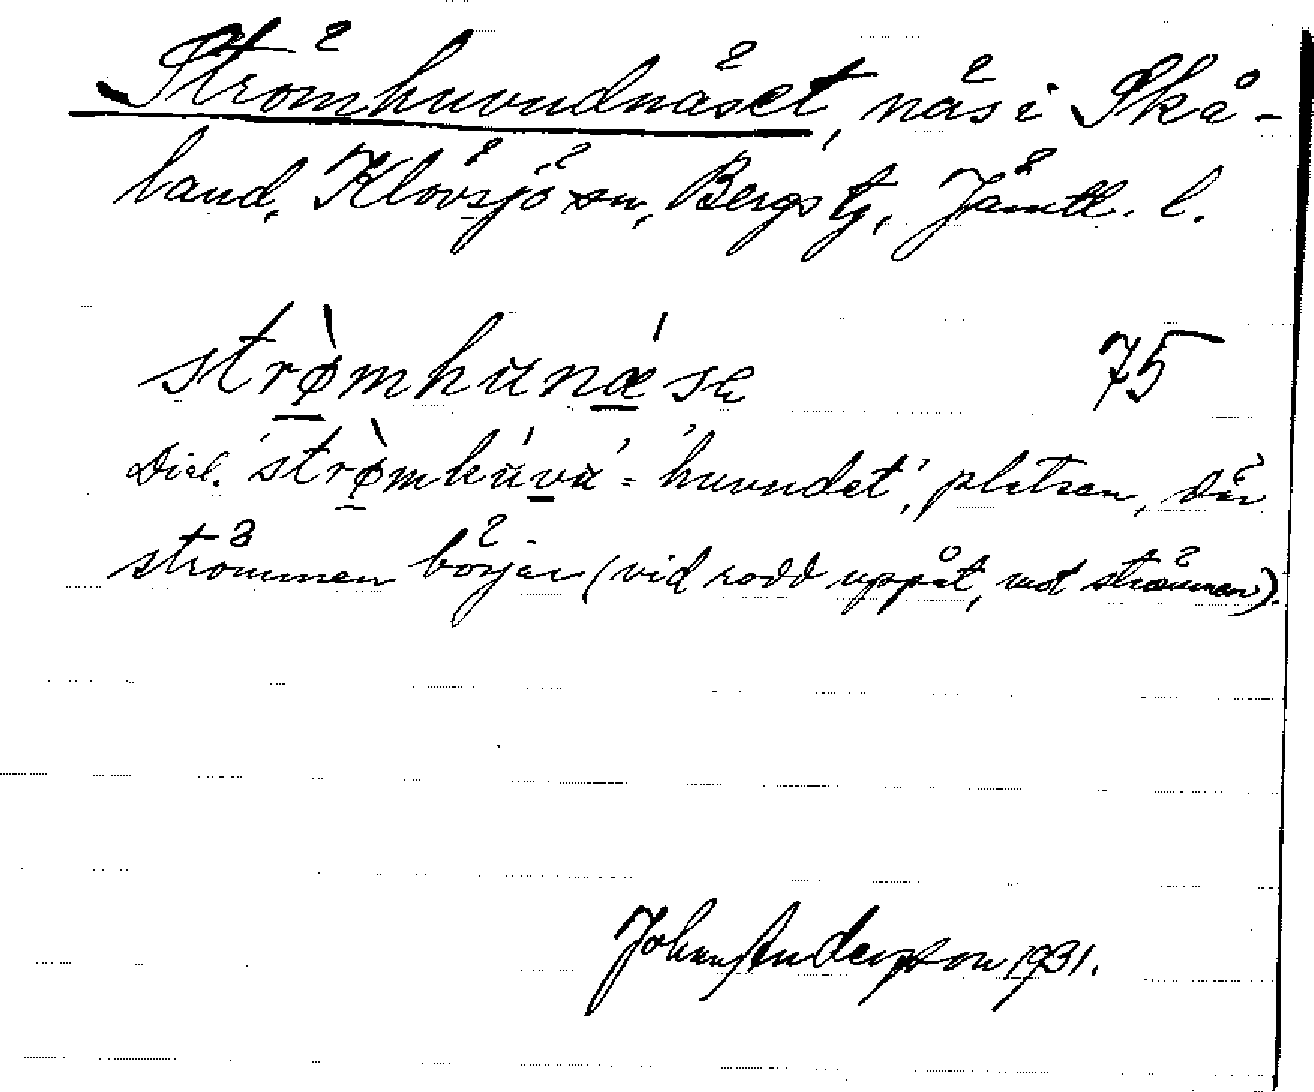 Strömhuvudnäset, näs i Skå-
land, Klövsjö sn, Bergs tg, Jämtl. l.
strømhunæse 75
Dial. 'strømhuvu' = 'huvudet', platsen, där
strömmen börjar (vid rodd uppåt, mot strömmen).
Johan Andersson 1931.